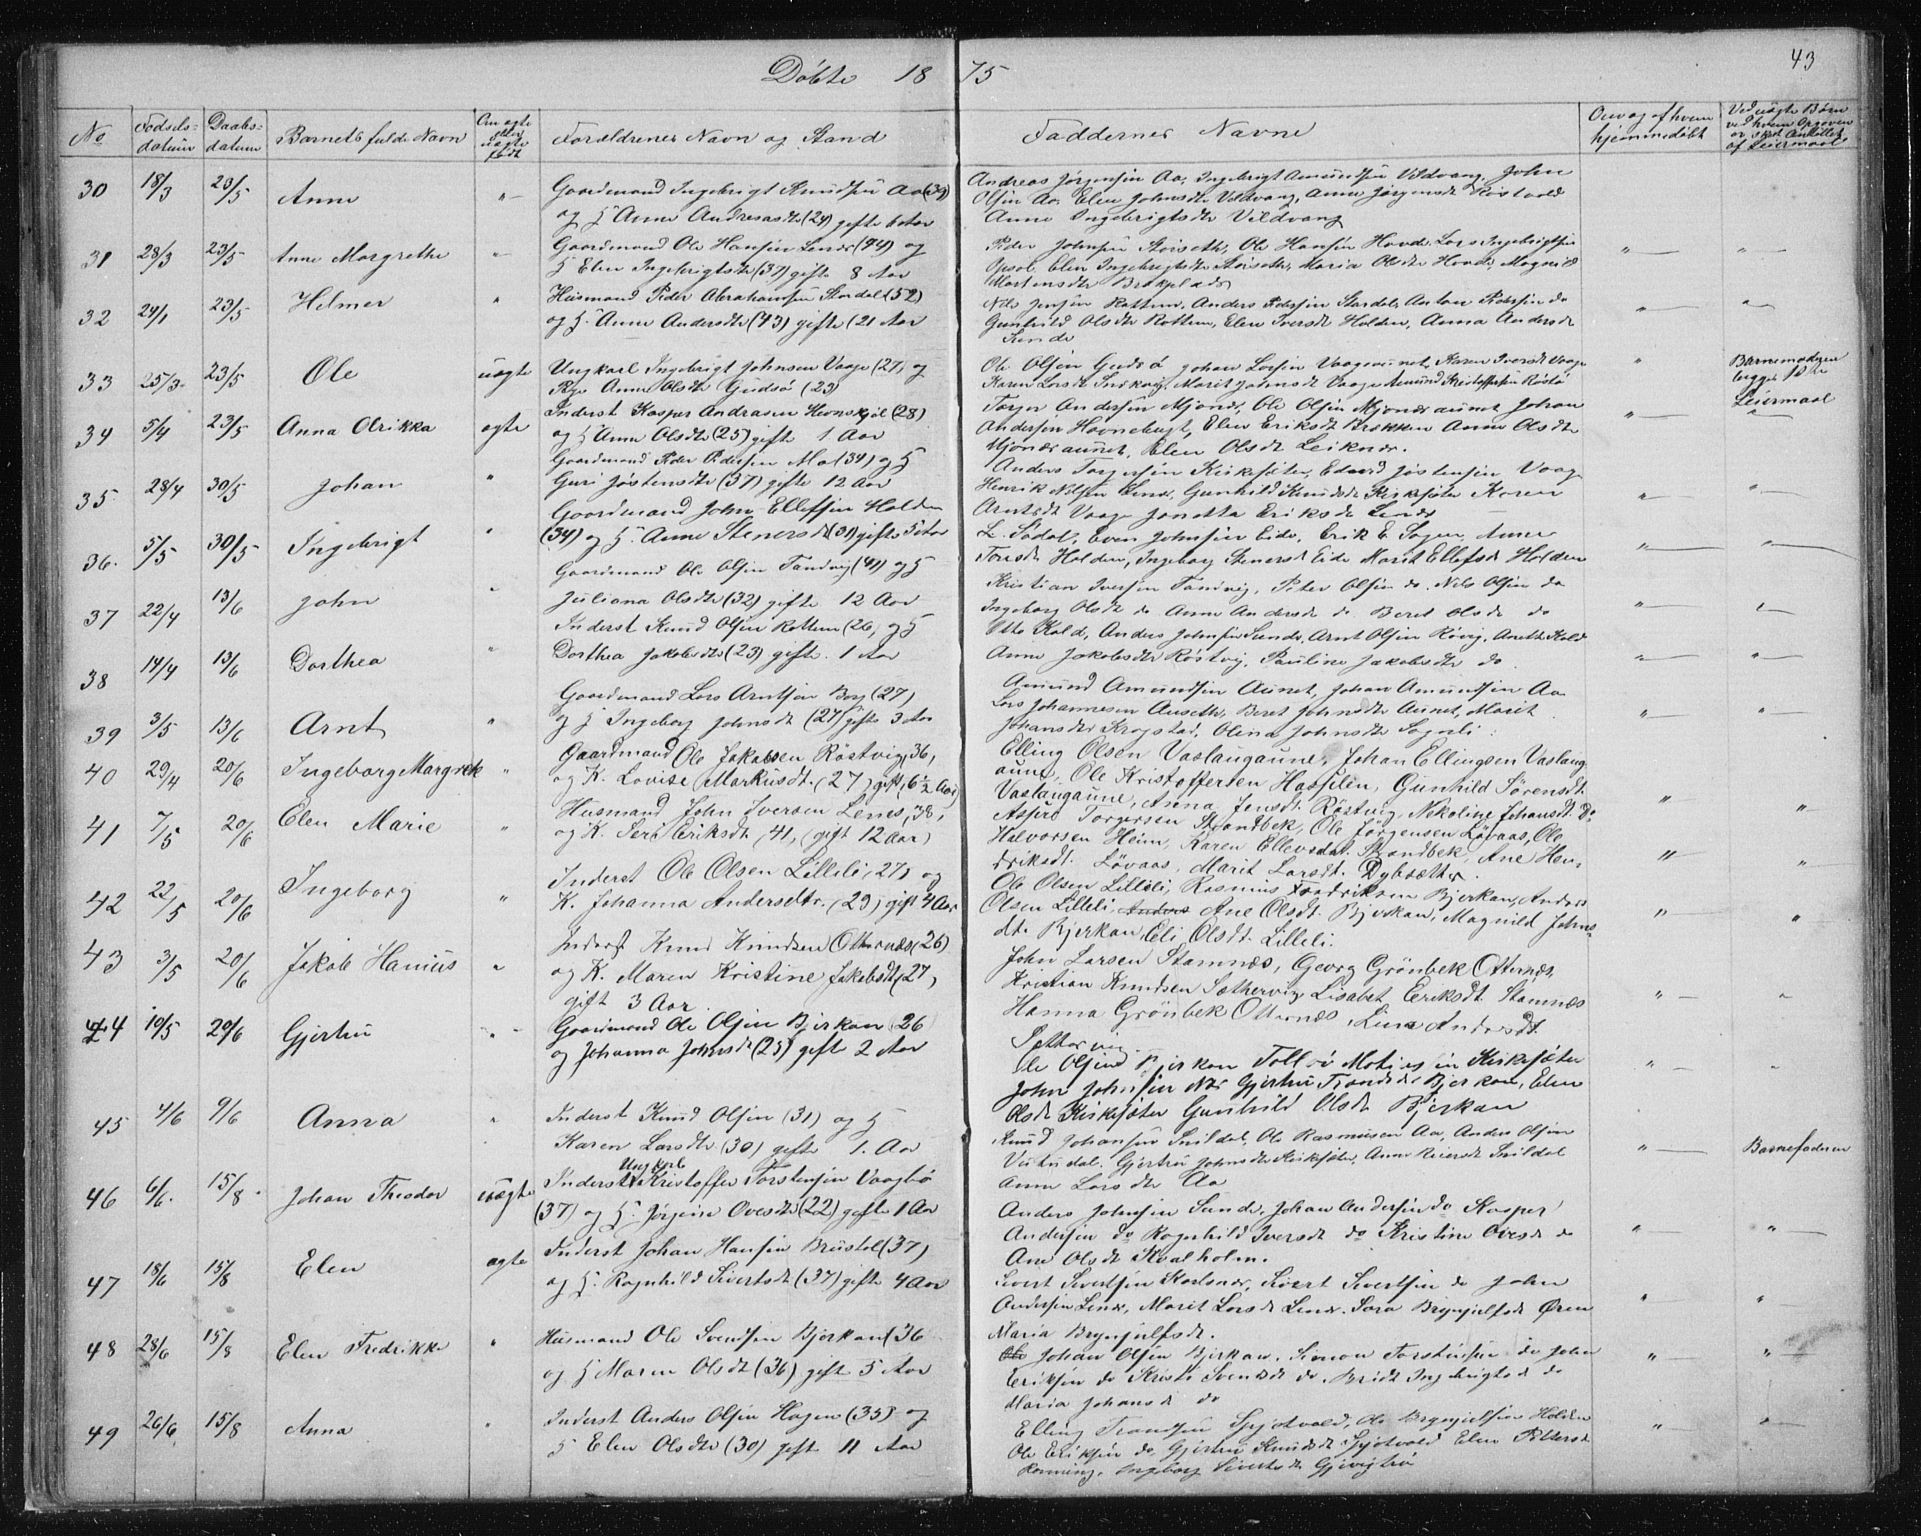 43
Döbte 1875
No
Födsels-datum
Daabs-datum
Barnets fulde Navn
Om ægte eller uægte födt
Forældrenes Navn og Stand
Faddernes Navne
Om og af hvem hjemmedöbt
Ved uægte Börn ved hvem Opgaven er skeet Antallet af Leiermaal
30 18/3 23/5 Anne "
Gaardmand Ingebrigt Knudsen Aa (39)
og H. Anne Andreasdtr (24) gifte 6 Aar
Andreas Jörgensen Aa, Ingebrigt Amundsen Vildvang, John
Olsen Aa, Elen Johnsdtr Vildvang, Anne Jörgensdt Röstvold
Anne Ingebrigtsdtr Vildvang
31 28/3 23/5 Anne Margrethe "
Gaardmand Ole Hansen Lenes (44) og
H Elen Ingebrigtsdtr (37) gifte 8 Aar
Peder Johnsen Stöiseth, Ole Hansen Hovde, Lars Ingebrigtsen
Opsal, Elen Ingebrigtsdtr Stöiseth, Maria Olsdtr Hovde, Magnild
Mortensdtr Brækplads
32 24/1 23/5 Helmer "
Husmand Peder Abrahamsen Stordal (52)
og H. Anne Andersdtr (43) gifte (21 Aar
Nils Jensen Rottem, Anders Pedersen Stordal, Anton Pedersen do
Gunhild Olsdtr Rottem, Elen Iversdt Holden, Anna Andersdt
Sunde
33 25/3 23/5 Ole uægte
Ungkarl Ingebrigt Johnsen Vaage (27, og
Pige Anne Olsdtr Gudsö (23)
Ole Olsen Gudsö Johan Larsen Vaageaunet, Karen Iversdt Vaage
Karen Larsdt, Marit Johnsdt Vaage Amund Kristoffersen Röstö
Barnemoderen
begges 1ste
Leiermaal
34 5/4 23/5 Anna Olrikka ægte
Inderst Kasper Andreasen Hevnskjel (28)
og H Anne Olsdtr (25) gifte 1 Aar
Torger Andersen Mjones, Ole Olsen Mjonesaunet Johan
Andersen Havnebugt, Elen Eriksdt Brekken Anne Olsdtr
Mjonesaunet, Elen Olsdt Leiknes.
35 28/4 30/5 Johan "
Gaardmand Peder Pedersen Mo (34) og H
Guri Jostensdtr (37) gifte 12 Aar
Anders Torgersen Kirksæter, Edvard Jostensen Vaag
Henrik Nilsen Lenes, Gunhild Knudsdt Kirksæter Karen
Arntsdt Vaage Jonetta Eriksdt Lenes
36. 5/5 30/5 Ingebrigt "
Gaardmand John Ellefsen Holden
(34) og H. Anne Stenersdt (31) gifte 5 Aar
L. Södal, Even Johnsen Eide, Erik E. Sagen, Anne
Toresdt Holden, Ingeborg Stenersdt Eide Marit Ellefsdt Holden
37 22/4 13/6 John "
Gaardmand Ole Olsen Tandvig (41) og H
Juliana Olsdtr (32) gifte 12 Aar
Kristian Iversen Tandvig, Peter Olsen do. Nils Olsen do
Ingeborg Olsdt do Anne Andersdt do Beret Olsdt do
38 14/4 13/6 Dorthea "
Inderst Knud Olsen Rottem (26, og H
Dorthea Jakobsdtr (23) gifte 1 Aar
Otto Kald, Anders Johnsen Sunde, Arnt Olsen Rövig, Aneth Kald
Anne Jakobsdtr Röstvig, Pauline Jakobsdtr do
39 3/5 13/6 Arnt "
Gaardmand Lars Arntsen Berg (27)
og H Ingeborg Johnsdt (27) gifte 3 Aar
Amund Amundsen Aunet, Johan Amundsen Aa
Lars Johannesen Auseth, Beret Johnsdtr Aunet, Marit
Johansdtr Krogstad, Olina Johnsdtr Sognli
40 29/4 20/6 Ingeborg Margrete "
Gaardmand Ole Jakobsen Röstvig, 36,
og K. Lovise Markusdt. (27) gift, 6½ Aar
Elling Olsen Vaslaugaune, Johan Ellingsen Vaslaug
aune, Ole Kristoffersen Hasselen, Gunhild Sörensdt.
Vaslaugaune, Anna Jensdt. Röstvig, Nikoline Johansdt. Do
41 7/5 20/6 Elen Marie "
Husmand John Iversen Lenes, 38,
og K. Seri Eriksdt (41, (gift 12 Aar)
Asfird Torgersen Strandbek, Ole Jörgensen Lövaas, Ole
Halvorsen Heim, Karen Ellevsdat. Strandbek, Ane Hen-
driksdt. Lövaas, Marit Larsdt. Dybsætter.
42 22/5 20/6 Ingeborg "
Inderst Ole Olsen Lilleli, 27, og
K. Johanna Andersdtr. (29) gift 4 Aar
Ole Olsen Lilleli, Rasmus Fredriksen Bjerkan, Anders
Olsen Lilleli, Anders Ane Olsdt. Bjerkan, Magnild Johns-
dtr Bjerkan Eli Olsdt. Lilleli.
43 3/5 20/6 Jakob Hanius "
Inderst Knud Knudsen Otternæs (26)
og K. Maren Kristine Jakobsdt (27,
gift 3 Aar.
John Larsen Stamnæs, Georg Grönbek Otternæs,
Kristian Knudsen Sæthervig Lisabet Eeriksdt. Stamnæs
Hanna Grönbek Otternæs, Lina Andersdt.
Sættervig
44 10/5 20/6 Gjertru "
Gaardmand Ole Olsen Bjerkan (26
og Johanna Johnsdt (25) gifte 2 Aar
Ole Olsen Bjerkan Tollev Motiesen Kirksæter
John Johnsen Næs Gjertru Trondsdt Bjerkan, Elen
Olsdt Kirksæter Gunhild Olsdt Bjerkan
45 4/6 9/6 Anna "
Inderst Knud Olsen (31) og H
Karen Larsdtr (30) gifte 1. Aar
Knud Johansen Snildal, Ole Rasmusen Aa, Anders Olsen
Vutudal. Gjertru Johnsdtr Kirksæter, Anne Reiersdt Snildal
Anne Larsdtr Aa
Barnefaderen
46 6/6. 15/8. Johan Theodor uægte
Ungkarl
Inderst Kristoffer Torstensen Vaagbö
(37) og H. Jörgine Ovesdtr (22) gifte 1 Aar
Anders Johnsen Sunde, Johan Andersen do Kasper
Andersen do Ragnhild Iversdt do Kristine Ovesdt do
Ane Olsdt Kvalholm.
47 18/6 15/8 Elen ægte
Inderst Johan Hansen Brustöl (37)
og H. Ragnhild Sivertsdt (37) gifte 4 Aar
Sivert Sivertsen Karlsnes, Sivert Sivertsen do John
Andersen Lenes, Marit Larsdt Lenes. Sara Brynjulfsdt Ören
Maria Brynjulfsdt.
48 28/6 15/8 Elen Fredrikke "
Husmand Ole Svendsen Bjerkan (36
og H Maren Olsdt (36) gifte 5 Aar
Ole Johan Olsen Bjerkan. Simon Torstensen do John
Eriksen do Kristi Svendsdt do. Bridt Ingebrigtsd do
Maria Johansd do
49 26/6 15/8 Anna "
Inderst Anders Olsen Hagen (35) og
H Elen Olsdtr (30) gift 11 Aar
Elling Tronsen Spjotvold, Ole Brynjelfsen Holden
Ole Eriksen do Gjertru Knudsdt Spjotvold Elen Pettersdt
Ronning, Ingeborg Sivertsdt Gjevigtrö